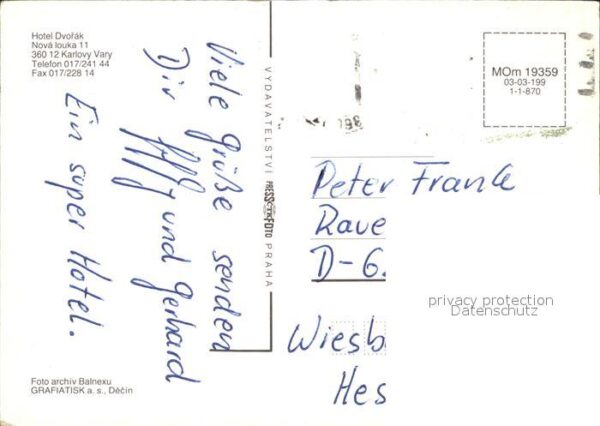 Hotel Dvořák
Nová louka 11
360 12 Karlovy Vary
Telefon 017/241 44
Fax 017/228 14
Viele Grüße senden
Dir und Gerhard
Ein super Hotel.
VYDAVATELSTVÍ PRESSFOTO PRAHA
MOm 19359
03-03-199
1-1-870
Peter Frank
Raue
D-6.
Wiesb
Hes
privacy protection
Datenschutz
Foto archiv Balnexu
GRAFIATISK a. s., Děčín